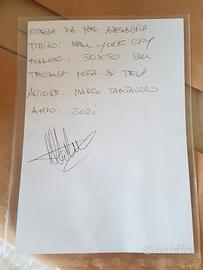 OPERA DA ME ESEGUITA
TITOLO: NEW YORK CITY
FORMATO: 50X50 CM
TECNICA MISTA SU TELA
AUTORE: MARCO TAMBURRO
ANNO: 2021